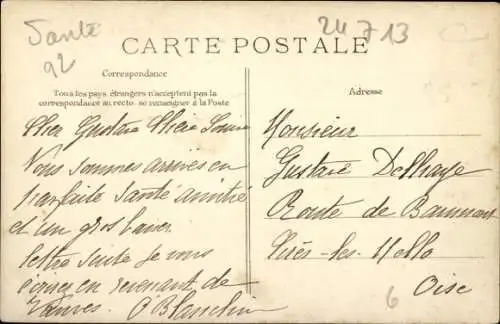 Santé
92
24 7 13
CARTE POSTALE
Correspondance
Tous les pays étrangers n'acceptent pas la
correspondance au recto - se renseigner à la Poste
Adresse
Cher Gustave Chère
Nous sommes arrivés en
parfaite santé amitié
et un gros baiser
lettre suite je vous
en revenant de
Vanves.
Monsieur
Gustave Delhaye
Route de
-les-Mello
Oise
6